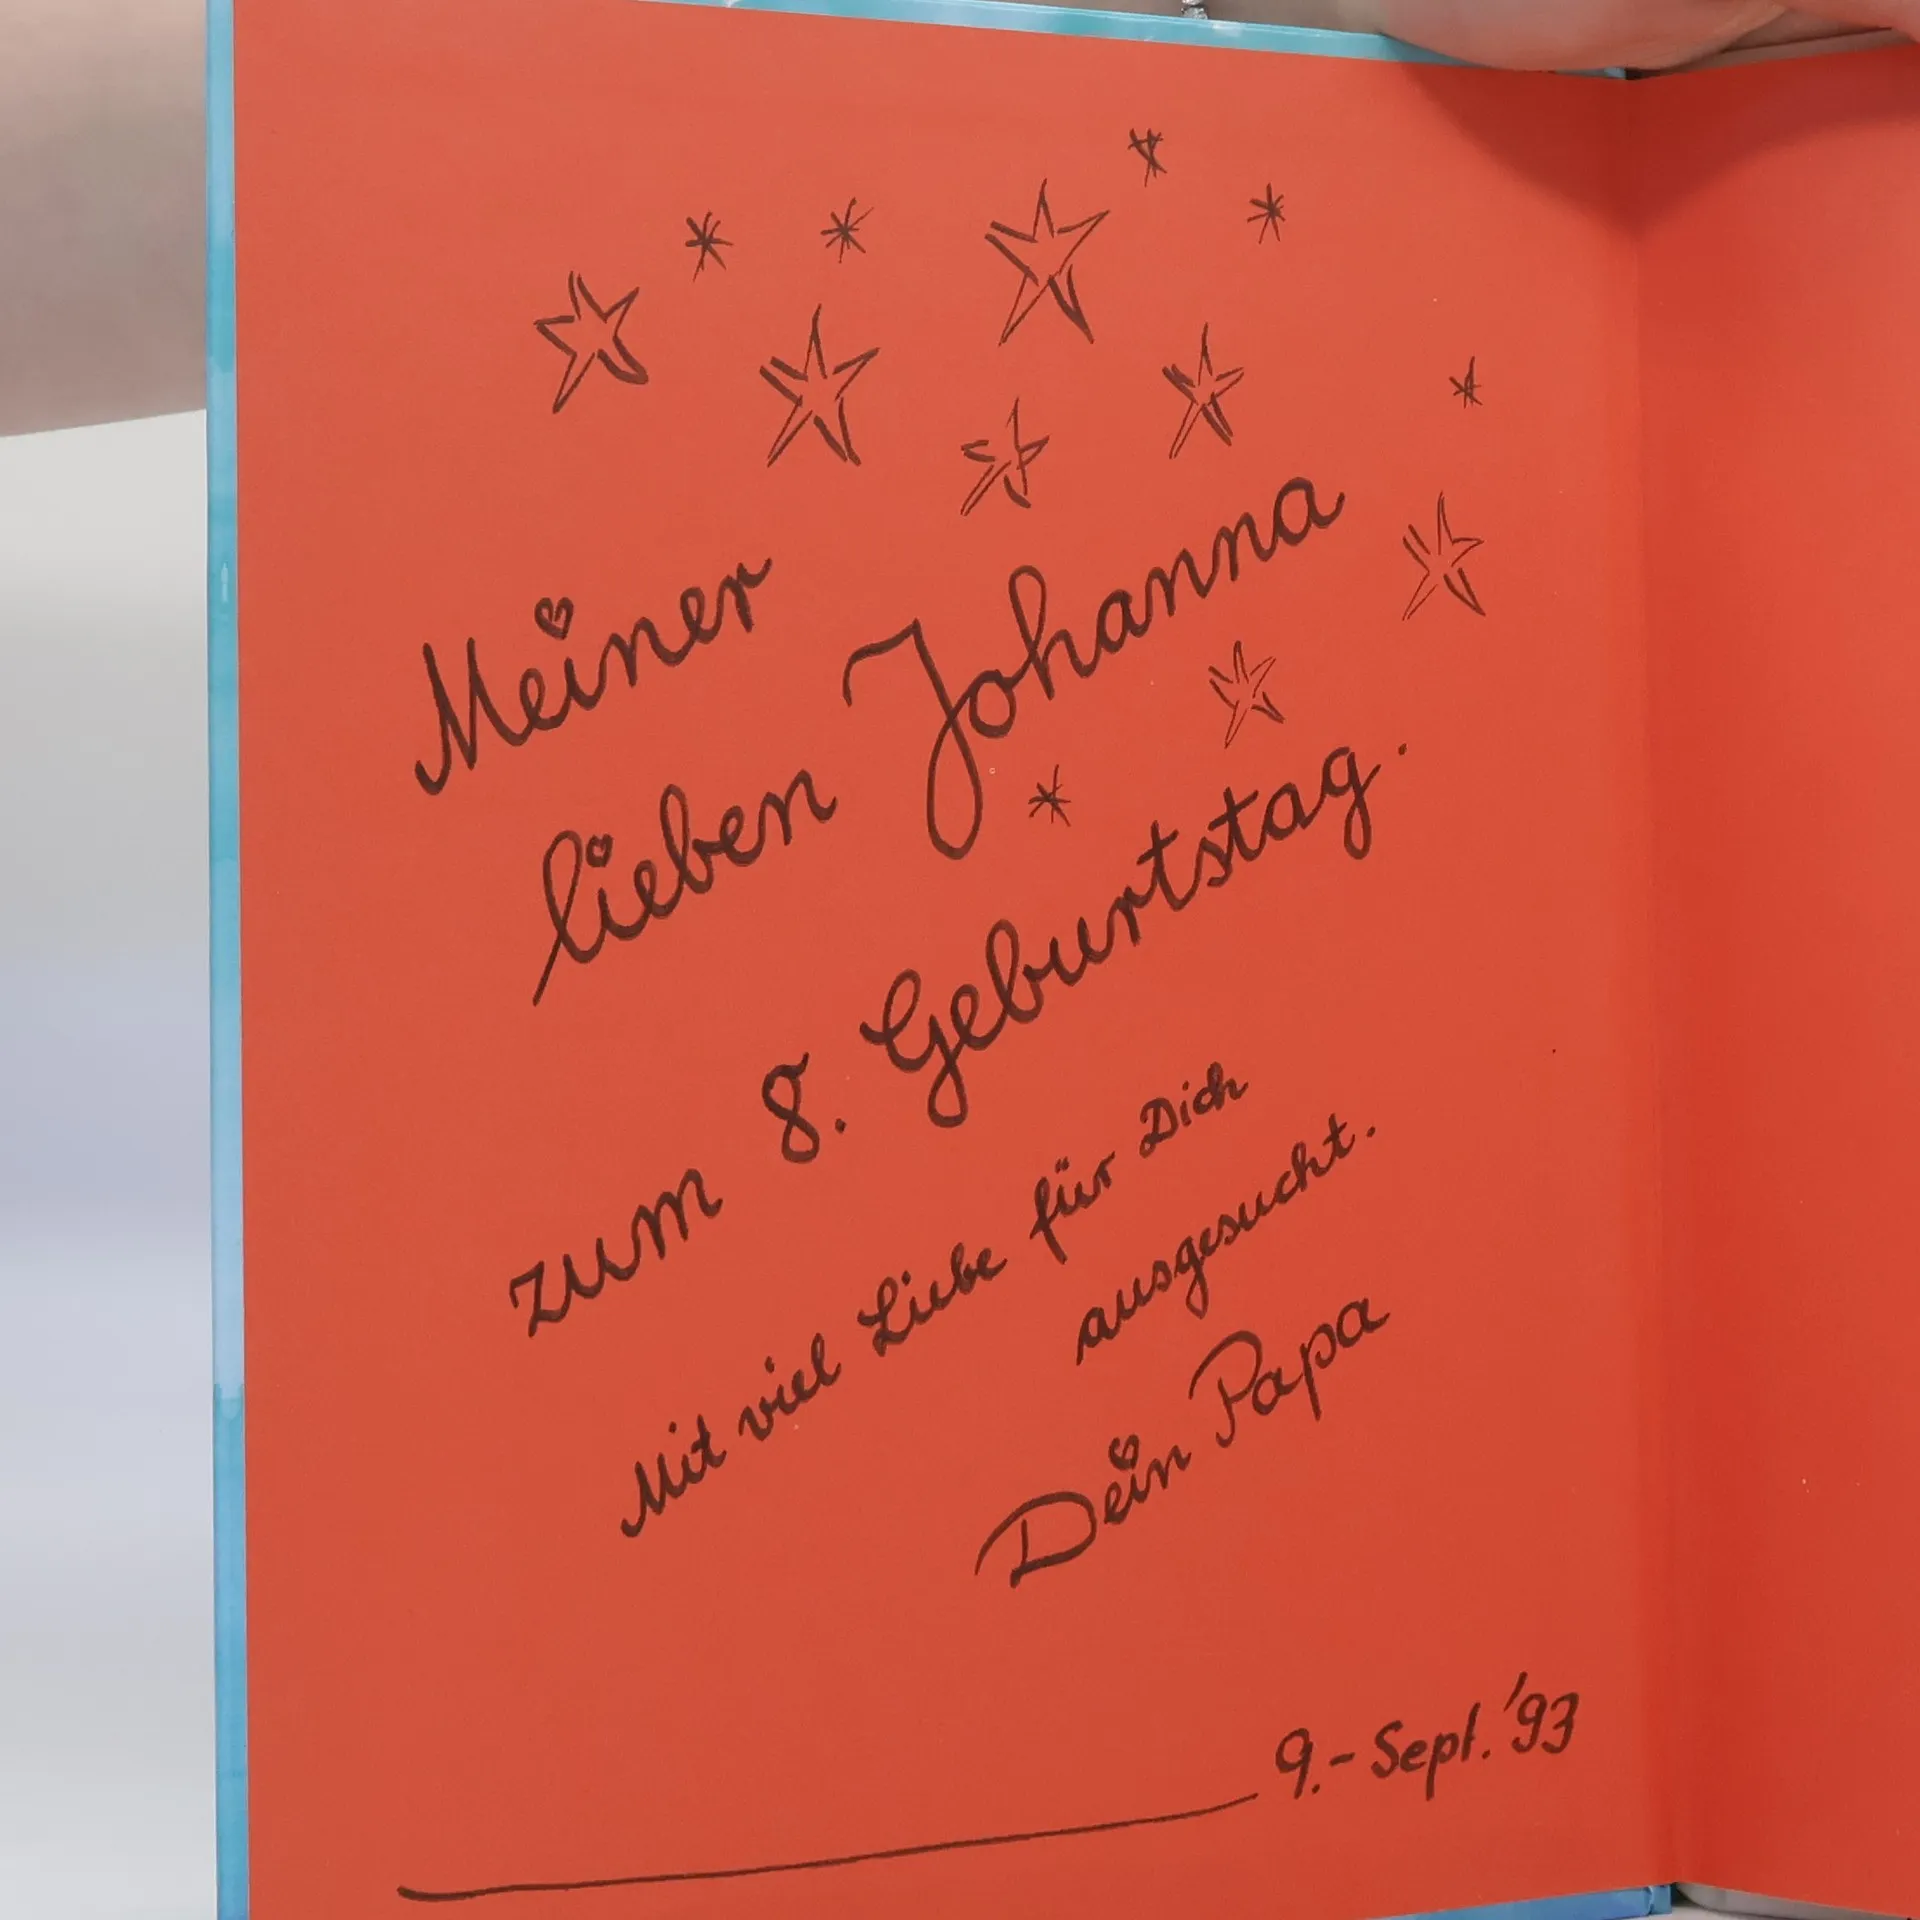 Meiner
lieben Johanna
zum 8. Geburtstag.
Mit viel Liebe für Dich
ausgesucht.
Dein Papa
9.- Sept. '93